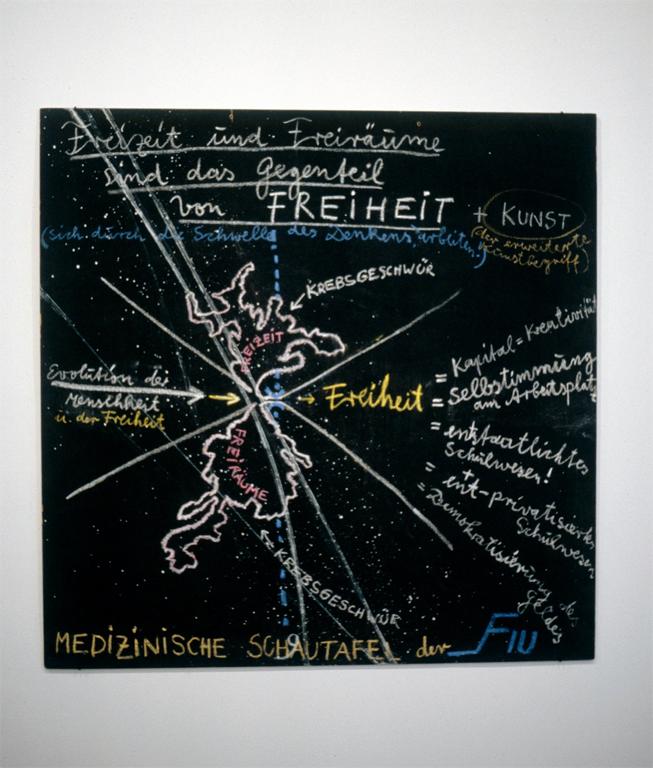 Freizeit und Freiräume
sind das Gegenteil
von FREIHEIT + KUNST
(sich durch die Schwelle des Denkens arbeiten!)
(der erweiterte
Kunstbegriff)
KREBSGESCHWÜR
FREIZEIT
Evolution der
Menschheit
u. der Freiheit
Freiheit
= Kapital = Kreativität
= selbstimmung
am Arbeitsplatz
= entstaatlichtes
Schulwesen!
+
= ent-privatisiertes
Schulwesen
= Demokratisierung des
geldes
FREIRÄUME
KREBSGESCHWÜR
MEDIZINISCHE SCHAUTAFEL der FIU